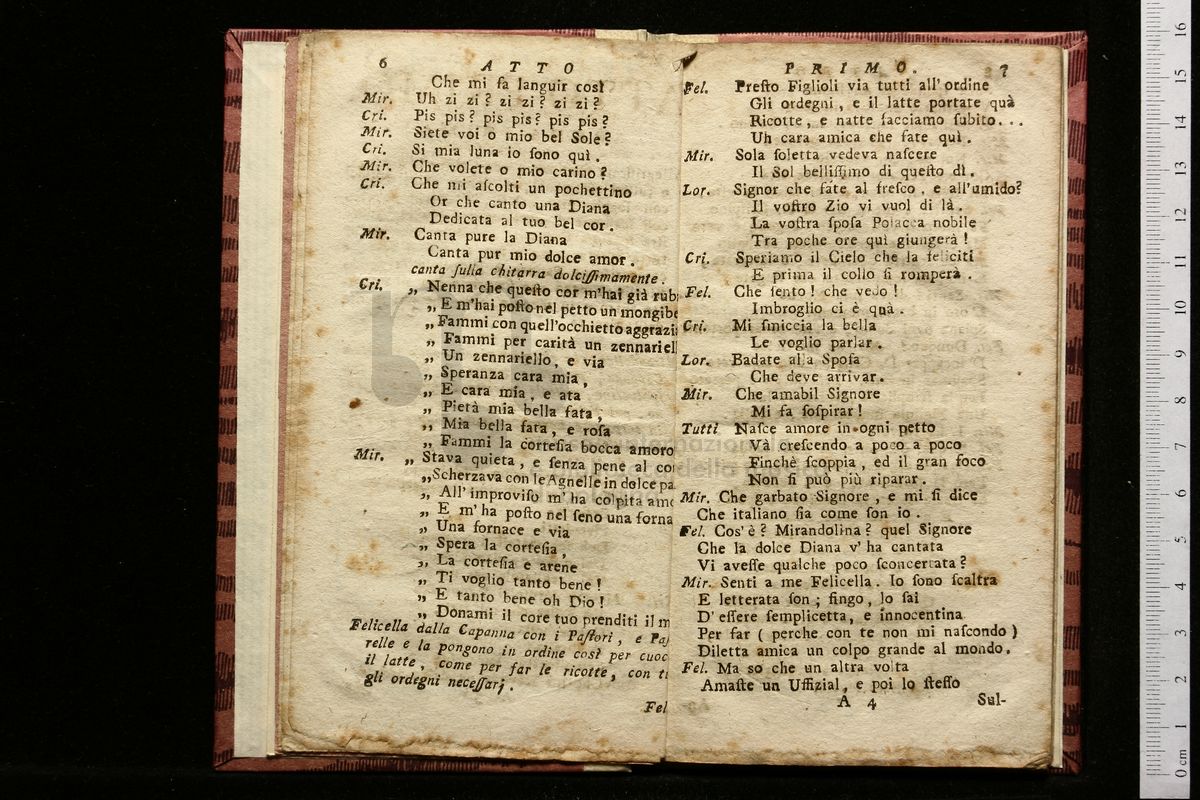 6 ATTO
Che mi fa languir così
Mir. Uh zi zi? zi zi? zi zi?
Cri. Pis pis? pis pis? pis pis?
Mir. Siete voi o mio bel Sole?
Cri. Si mia luna io ſono quì.
Mir. Che volete o mio carino?
Cri. Che mi aſcolti un pochettino
Or che canto una Diana
Dedicata al tuo bel cor.
Mir. Canta pure la Diana
Canta pur mio dolce amor.
canta ſulla chitarra dolciſſimamente.
Cri. „ Nenna che queſto cor m'hai già rub
„ E m'hai poſto nel petto un mongibe
„ Fammi con quell'occhietto aggrazi
„ Fammi per carità un zennariell
„ Un zennariello, e via
„ Speranza cara mia,
„ E cara mia, e ata
„ Pietà mia bella fata,
„ Mia bella fata, e roſa
„ Fammi la corteſia bocca amoro
Mir. „ Stava quieta, e ſenza pene al co
„ Scherzava con le Agnelle in dolce pa
„ All' improviſo m' ha colpita amo
„ E m' ha poſto nel ſeno una forna
„ Una fornace e via
„ Spera la corteſia,
„ La corteſia e arene
„ Ti voglio tanto bene!
„ E tanto bene oh Dio!
„ Donami il core tuo prenditi il m
Felicella dalla Capanna con i Paſtori, e Paſ
relle e la pongono in ordine così per cuoc
il latte, come per far le ricotte, con ti
gli ordegni neceſſarj.
Fel
PRIMO. 7
Fel. Preſto Figlioli via tutti all' ordine
Gli ordegni, e il latte portate quà
Ricotte, e natte facciamo ſubito...
Uh cara amica che fate quì.
Mir. Sola ſoletta vedeva naſcere
Il Sol belliſſimo di queſto dì.
Lor. Signor che fate al freſco, e all'umido?
Il voſtro Zio vi vuol di là.
La voſtra ſpoſa Polacca nobile
Tra poche ore quì giungerà!
Cri. Speriamo il Cielo che la feliciti
E prima il collo ſi romperà.
Fel. Che ſento! che vedo!
Imbroglio ci è quà.
Cri. Mi ſmiccia la bella
Le voglio parlar.
Lor. Badate alla Spoſa
Che deve arrivar.
Mir. Che amabil Signore
Mi fa ſoſpirar!
Tutti Naſce amore in ogni petto
Và creſcendo a poco a poco
Finchè ſcoppia, ed il gran foco
Non ſi può più riparar.
Mir. Che garbato Signore, e mi ſi dice
Che italiano ſia come ſon io.
Fel. Cos' è? Mirandolina? quel Signore
Che la dolce Diana v' ha cantata
Vi aveſſe qualche poco ſconcertata?
Mir. Senti a me Felicella. Io ſono ſcaltra
E letterata ſon; fingo, lo ſai
D' eſſere ſemplicetta, e innocentina
Per far (perche con te non mi naſcondo)
Diletta amica un colpo grande al mondo.
Fel. Ma ſo che un altra volta
Amaſte un Uffizial, e poi lo ſteſſo
A 4 Sul-
0 cm 1 2 3 4 5 6 7 8 9 10 11 12 13 14 15 16